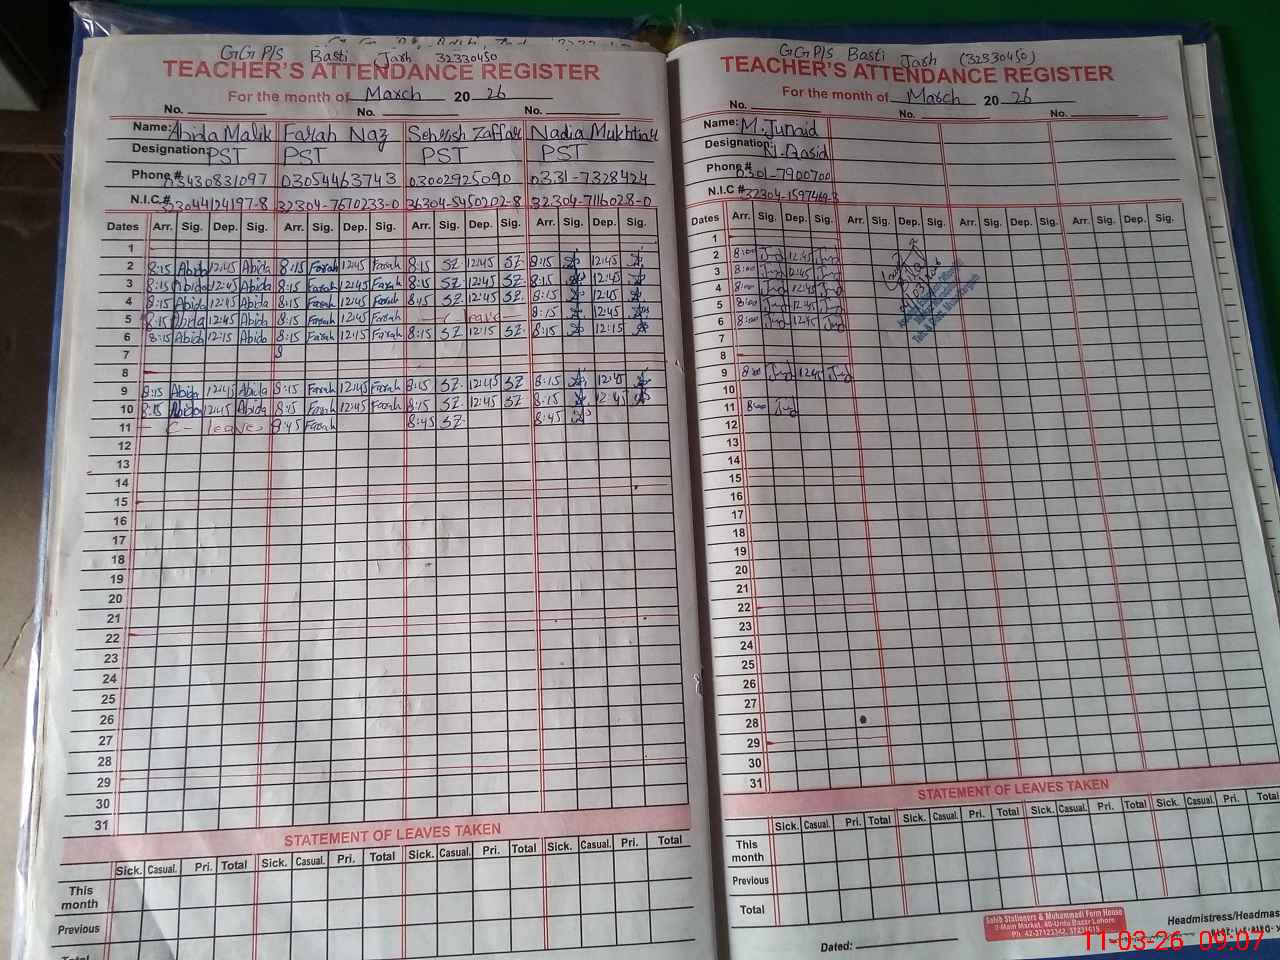 GGP/S Basti Jarh 32330450
TEACHER'S ATTENDANCE REGISTER
For the month of March 20 26
No. No. No.
Name: Abida Malik Farah Naz Sehrish Zaffar Nadia Mukhtiar
Designation: PST PST PST PST
Phone # 03430831097 03054463743 03002925090 0331-7328424
N.I.C.# 32304-7670233-0 36304-5450202-8 32304-7116028-0
Dates Arr. Sig. Dep. Sig. Arr. Sig. Dep. Sig. Arr. Sig. Dep. Sig. Arr. Sig. Dep. Sig.
1
2 8:15 Abida 12:45 Abida 8:15 Farah 12:45 Farah 8:15 SZ 12:45 SZ 8:15 12:45
3 8:15 Abida 12:45 Abida 8:15 Farah 12:45 Farah 8:15 SZ 12:45 SZ 8:15 12:45
4 8:15 Abida 12:45 Abida 8:15 Farah 12:45 Farah 8:15 SZ 12:45 SZ 8:15 12:45
5 8:15 Abida 12:45 Abida 8:15 Farah 12:45 Farah C leave 8:15 12:45
6 8:15 Abida 12:15 Abida 8:15 Farah 12:15 Farah 8:15 SZ 12:15 SZ 8:15 12:15
7 8
8
9 8:15 Abida 12:45 Abida 8:15 Farah 12:45 Farah 8:15 SZ 12:45 SZ 8:15 12:45
10 8:15 Abida 12:45 Abida 8:15 Farah 12:45 Farah 8:15 SZ 12:45 SZ 8:15 12:45
11 - C - leave 8:45 Farah 8:45 SZ 8:45
12
13
14
15
16
17
18
19
20
21
22
23
24
25
26
27
28
29
30
31
STATEMENT OF LEAVES TAKEN
Sick. Casual. Pri. Total Sick. Casual. Pri. Total Sick. Casual. Pri. Total Sick. Casual. Pri. Total
This month
Previous
Total
GGP/S Basti Jarh (32330450)
TEACHER'S ATTENDANCE REGISTER
For the month of March 20 26
No. No. No.
Name: M. Junaid
Designation: N. Qasid
Phone # 0301-7900700
N.I.C # 32304-1597469-3
Dates Arr. Sig. Dep. Sig. Arr. Sig. Dep. Sig. Arr. Sig. Dep. Sig. Arr. Sig. Dep. Sig.
1
2 8:00 Jnd 12:45 Jnd
3 8:00 Jnd 12:45 Jnd
4 8:00 Jnd 12:45 Jnd
5 8:00 Jnd 12:45 Jnd
6 8:00 Jnd 12:45 Jnd
7
8
9 8:00 Jnd 12:45 Jnd
10
11 8:00 Jnd
12
13
14
15
16
17
18
19
20
21
22
23
24
25
26
27
28
29
30
31
STATEMENT OF LEAVES TAKEN
Sick. Casual. Pri. Total Sick. Casual. Pri. Total Sick. Casual. Pri. Total Sick. Casual. Pri. Total
This month
Previous
Total
Sahib Stationers & Muhammadi Form House
Main Market, 40-Urdu Bazar Lahore
Ph: 42-37123342, 37231615
Dated:
Headmistress/Headmas
11-03-26 09:07